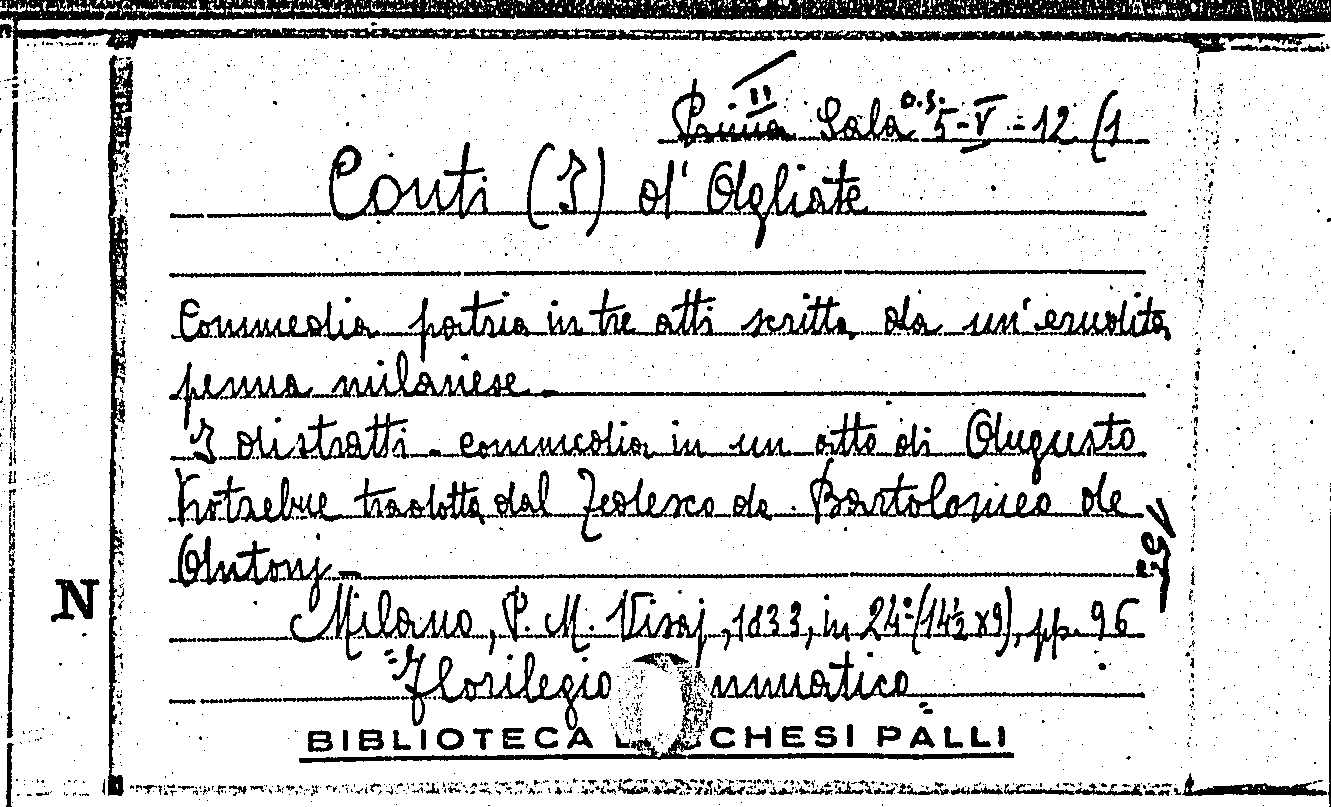 II
Prima Sala O.S. 5-V-12 (1
Conti (I) d'Agliate
Commedia patria in tre atti scritta da un'erudita
penna milanese.
I distratti. commedia in un atto di Augusto
Kotzebue tradotta dal Tedesco da Bartolomeo de
Antonj-
Milano, P. M. Visaj, 1833, in 24° (14½ x 9), pp. 96
"Florilegio mmatico"
BIBLIOTECA L CHESI PALLI
N